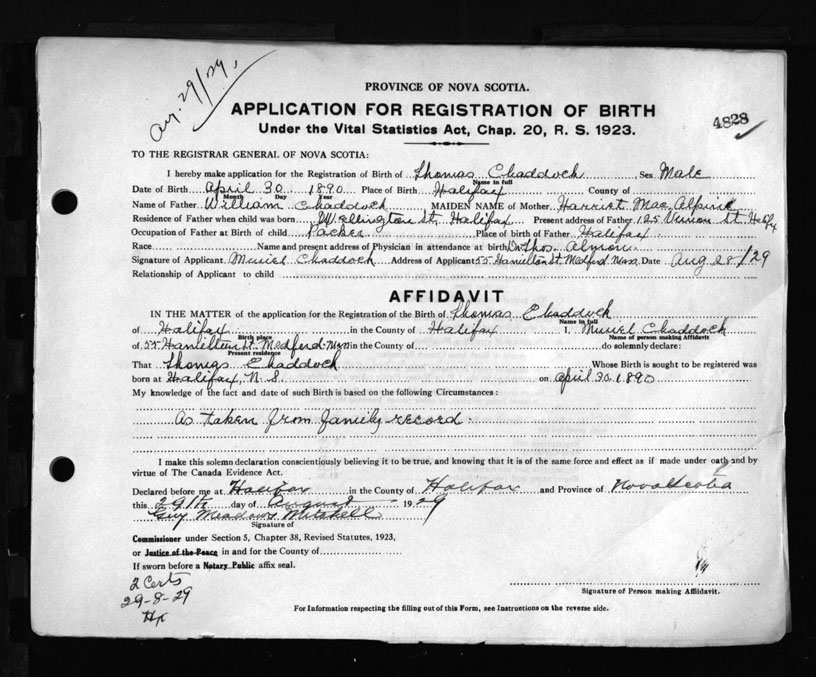 Aug. 29/29.
PROVINCE OF NOVA SCOTIA.
APPLICATION FOR REGISTRATION OF BIRTH
4828
Under the Vital Statistics Act, Chap. 20, R. S. 1923.
TO THE REGISTRAR GENERAL OF NOVA SCOTIA:
I hereby make application for the Registration of Birth of Thomas Chaddock, Sex Male
Name in full
Date of Birth April 30. 1890 Place of Birth Halifax County of
Month Day Year
Name of Father William Chaddock MAIDEN NAME of Mother Harriet Mac Alpine
Residence of Father when child was born Wellington St. Halifax Present address of Father 125 Vernon St Halifx
Occupation of Father at Birth of child Packer Place of birth of Father Halifax
Race Name and present address of Physician in attendance at birth Dr Thos. Almon.
Signature of Applicant Muriel Chaddock Address of Applicant 55 Hamilton St. Medford Mass. Date Aug 28/29
Relationship of Applicant to child
AFFIDAVIT
IN THE MATTER of the application for the Registration of the Birth of Thomas Chaddock
Name in full
of Halifax in the County of Halifax I, Muriel Chaddock
Birth place Name of person making Affidavit
of 55 Hamilton St. Medford. Mass in the County of do solemnly declare:
Present residence
That Thomas Chaddock Whose Birth is sought to be registered was
born at Halifax, N.S. on April 30. 1890
My knowledge of the fact and date of such Birth is based on the following Circumstances:
As taken from family record.
I make this solemn declaration conscientiously believing it to be true, and knowing that it is of the same force and effect as if made under oath and by
virtue of The Canada Evidence Act.
Declared before me at Halifax in the County of Halifax and Province of Nova Scotia
this 29th day of August 1929
Guy Meadows Mitchell
Signature of
Commissioner under Section 5, Chapter 38, Revised Statutes, 1923,
or Justice of the Peace in and for the County of
If sworn before a Notary Public affix seal.
2 Certs
29-8-29
Hx
Signature of Person making Affidavit.
For Information respecting the filling out of this Form, see Instructions on the reverse side.